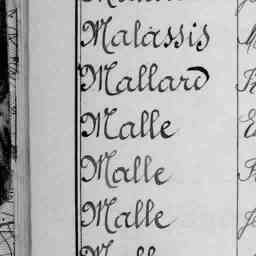 Malassis
Mallard
Malle
Malle
Malle